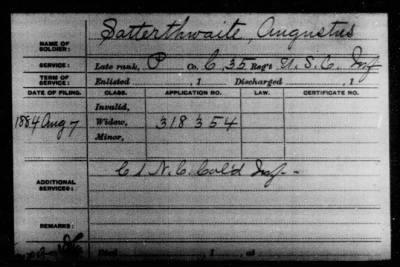 NAME OF SOLDIER: Satterthwaite, Augustus
SERVICE: Late rank, P Co. C, 35 Reg't U.S.C. Inf
TERM OF SERVICE: Enlisted , 1 Discharged , 1
DATE OF FILING. CLASS. APPLICATION NO. LAW. CERTIFICATE NO.
Invalid,
1884 Aug 7 Widow, 318354
Minor,
ADDITIONAL SERVICES: C 1 N.C. Col'd Inf-
REMARKS:
Died , 1 , at